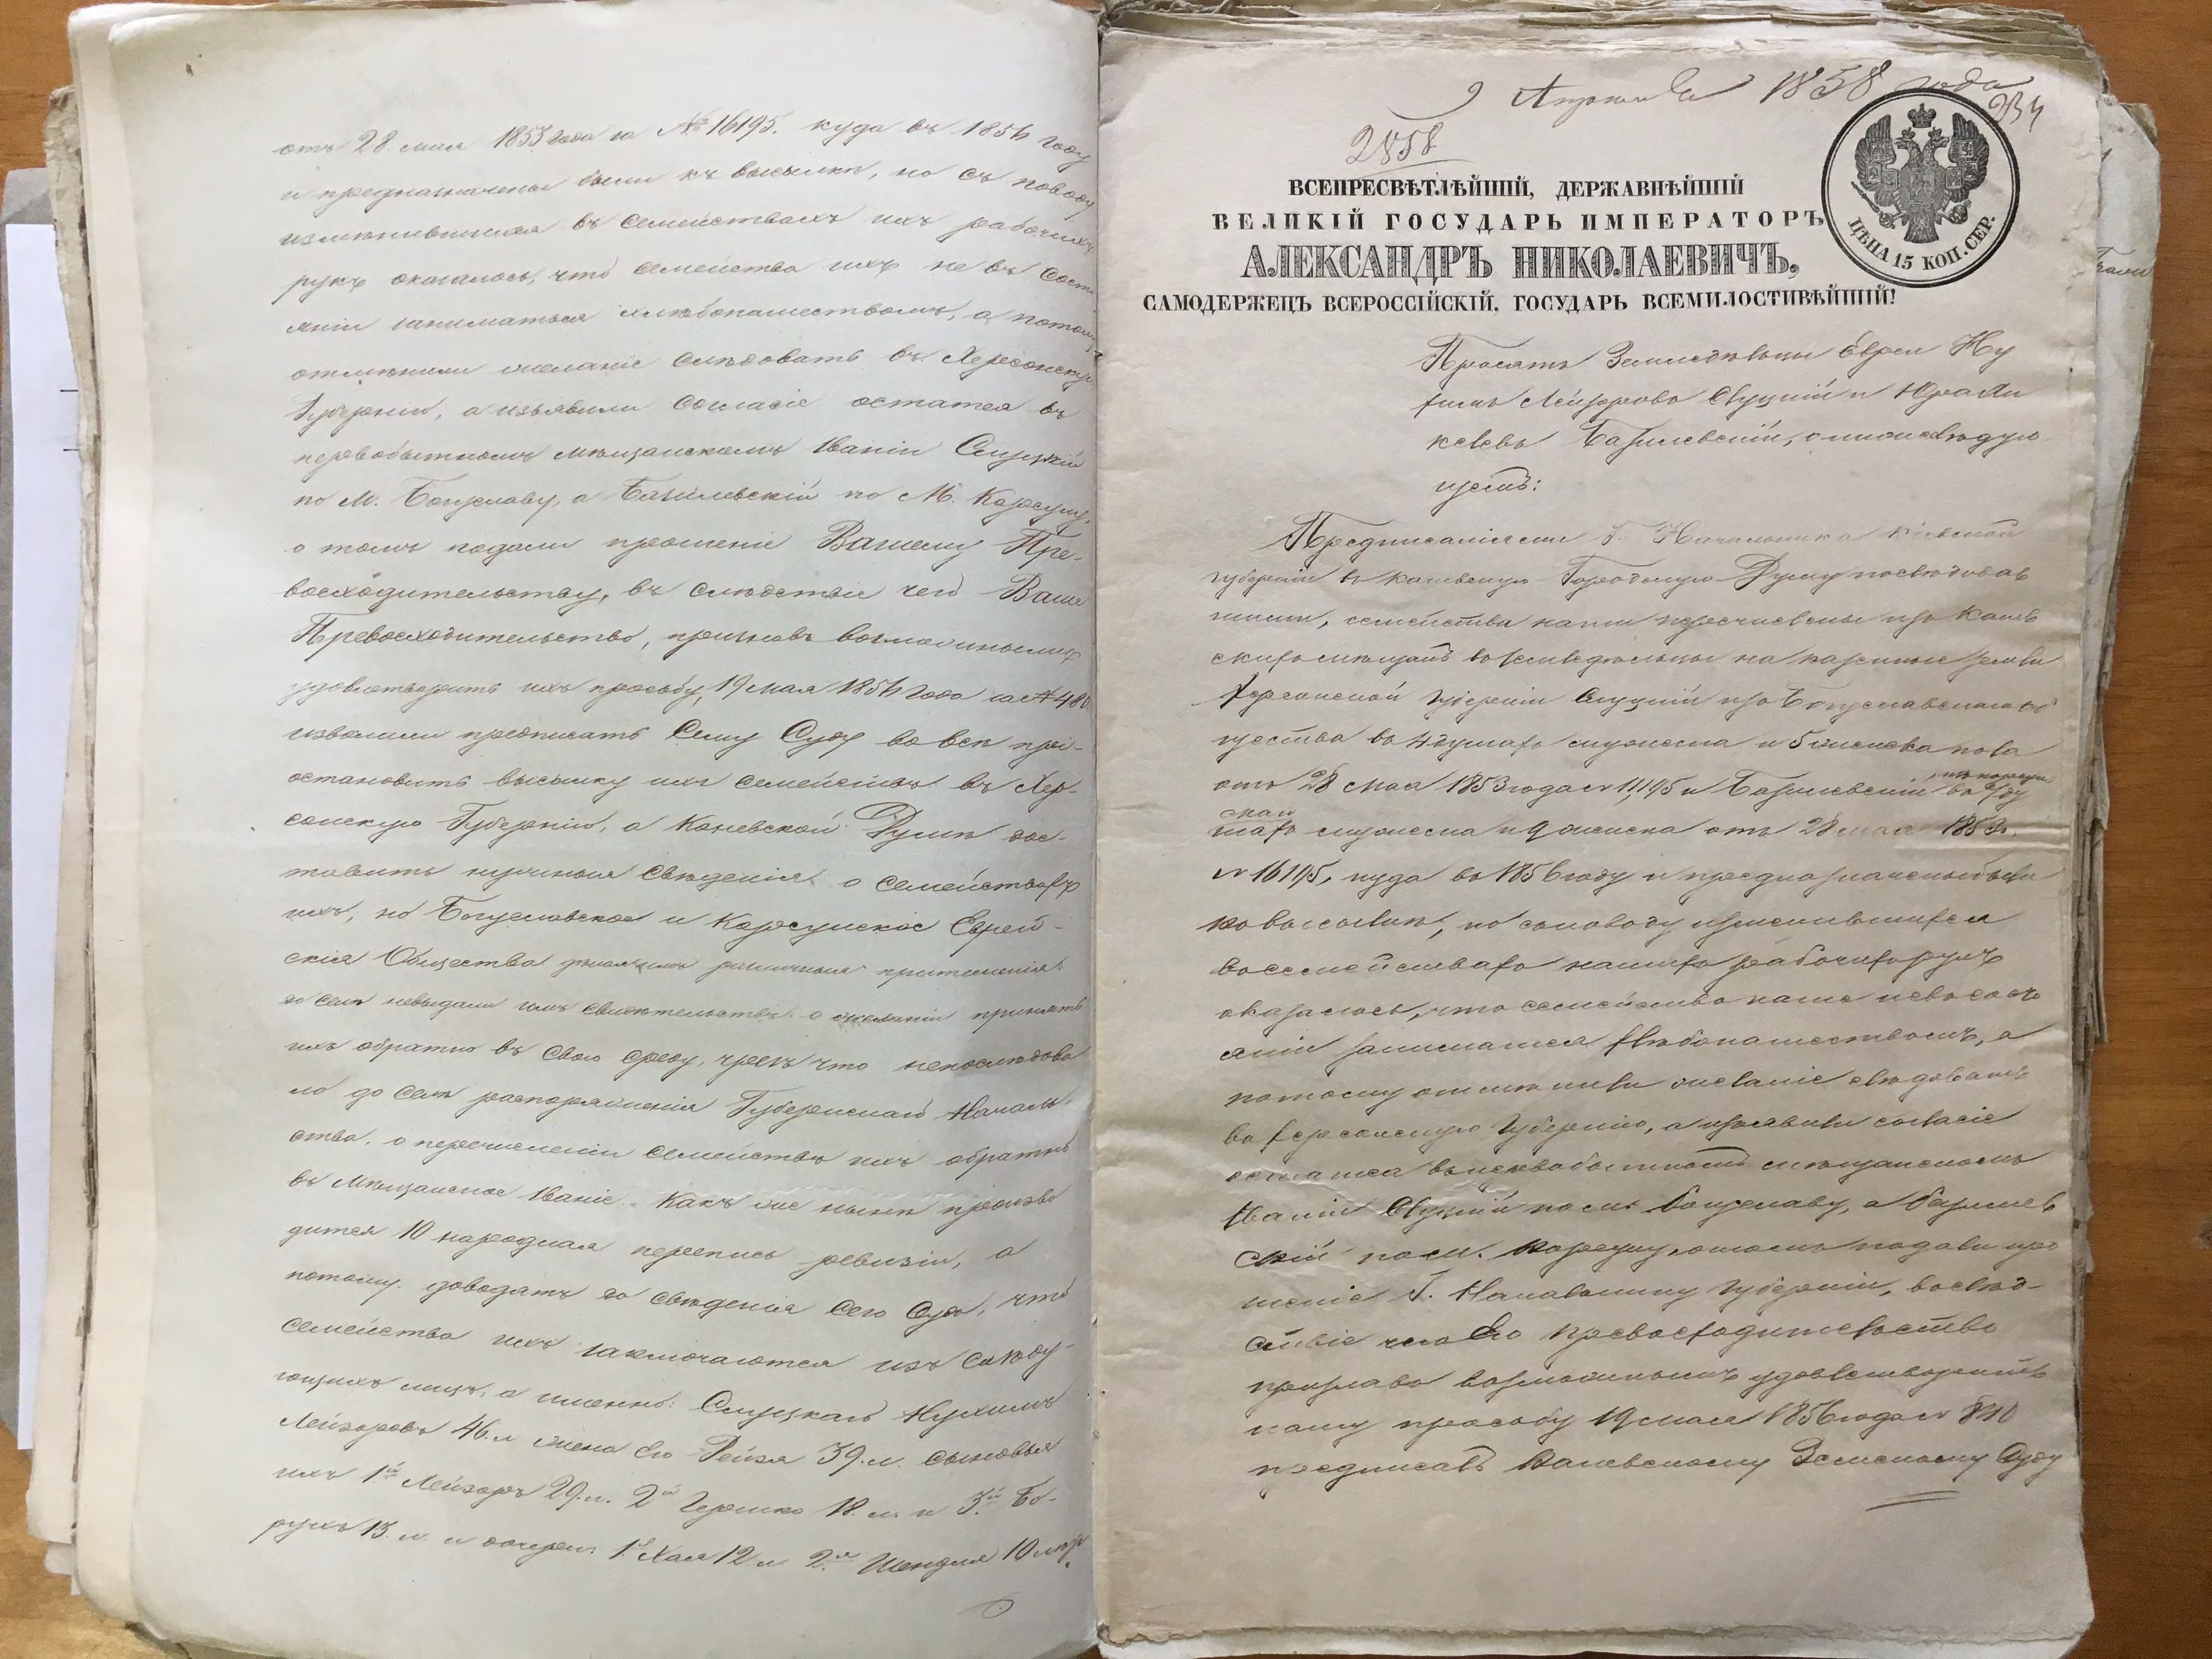 отъ 28 мая 1853 года за № 16195. куда въ 1856 году
и предназначены были къ высылкѣ, но съ поводу
измѣнившихся въ семействахъ ихъ рабочихъ
рукъ оказалось, что семейства ихъ не въ состо
яніи заниматься хлѣбопашествомъ, а потому
отмѣнили желаніе слѣдовать въ Херсонскую
Губернію, а изъявили согласіе остатся въ
первобытномъ мѣщанскомъ званіи Слуцкій
по М. Богуславу, а Базилевскій по М. Корсуну,
о томъ подали прошеніе Вашему Пре-
восходительству, въ слѣдствіе чего Ваше
Превосходительство, признавъ возможнымъ
удовлетворить ихъ просьбу, 19 мая 1856 года за №
изволили предписать Сему Суду вовсе прі-
остановить высылку ихъ семействъ въ Хер-
сонскую Губернію, а Каневской Думѣ дос-
тавить нужныя свѣденія о семействахъ
ихъ, но Богуславское и Корсунское Еврей-
скія Общества различныя притѣсненія
до селѣ невыдали имъ свидѣтельства о желаніи принять
ихъ обратно въ свою среду, чрезъ что непослѣдова
ло до селѣ распоряженія Губернскаго Началь-
ства, о перечисленіи семействъ ихъ обратно
въ мѣщанское званіе. Какъ же нынѣ произво
дится 10 народная перепись ревизіи, а
потому доводятъ до свѣденія сего Суда, что
семейства ихъ заключаются изъ слѣду-
ющихъ лицъ, а именно: Слуцкаго Нухимъ
Лейзоровъ 46. л жена его Рейзя 39. л. сыновья
ихъ 1й Лейзоръ 29. л. 2й Гершко 18. л. и 3й Бо-
рухъ 13. л и дочери 1я Хая 12 л 2я Шендля 10 лѣтъ.
9 Апрѣля 1858 года
234
2858
ВСЕПРЕСВѢТЛѢЙШІЙ, ДЕРЖАВНѢЙШІЙ
ВЕЛИКІЙ ГОСУДАРЬ ИМПЕРАТОРЪ
АЛЕКСАНДРЪ НИКОЛАЕВИЧЪ,
САМОДЕРЖЕЦЪ ВСЕРОССІЙСКІЙ, ГОСУДАРЬ ВСЕМИЛОСТИВѢЙШІЙ!
ЦѢНА 15 КОП. СЕР.
Просятъ Земледѣльцы Евреи Ну
химъ Лейзоровъ Слуцкій и
Базилевскій, о нижеслѣдую
щемъ:
Предписаніями Г. Начальника Кіевской
губерніи въ Каневскую Городскую Думу послѣдовав
шими, семейства наши перечислены изъ Канев
скихъ мѣщанъ въ земледѣльцы на казенные земли
Херсонской губерніи Слуцкій изъ Богуславскаго об
щества въ 4 душахъ мужеска и 5 женска пола
отъ 28 мая 1853 года № и Базилевскій
шахъ мужеска и 9 женска отъ 28 мая 1853 г.
№ 16195, куда въ 1856 году и предназначены были
къ высылкѣ, но съ поводу измѣнившихся
въ семействахъ нашихъ рабочихъ рукъ
оказалось, что семейство наше не въ состо
яніи заниматся хлѣбопашествомъ, а
потому отмѣнили желаніе слѣдовать
въ Херсонскую губернію, а изъявили согласіе
остатся въ первобытномъ мѣщанскомъ
званіи Слуцкій по м. Богуславу, а Базилев
скій по м. Корсуну, о томъ подали про
шеніе Г. Начальнику губерніи, въ слѣд-
ствіе чего Его превосходительство
признавъ возможнымъ удовлетворить
нашу прозьбу 19 мая 1856 года №
предписалъ Каневскому Земскому Суду